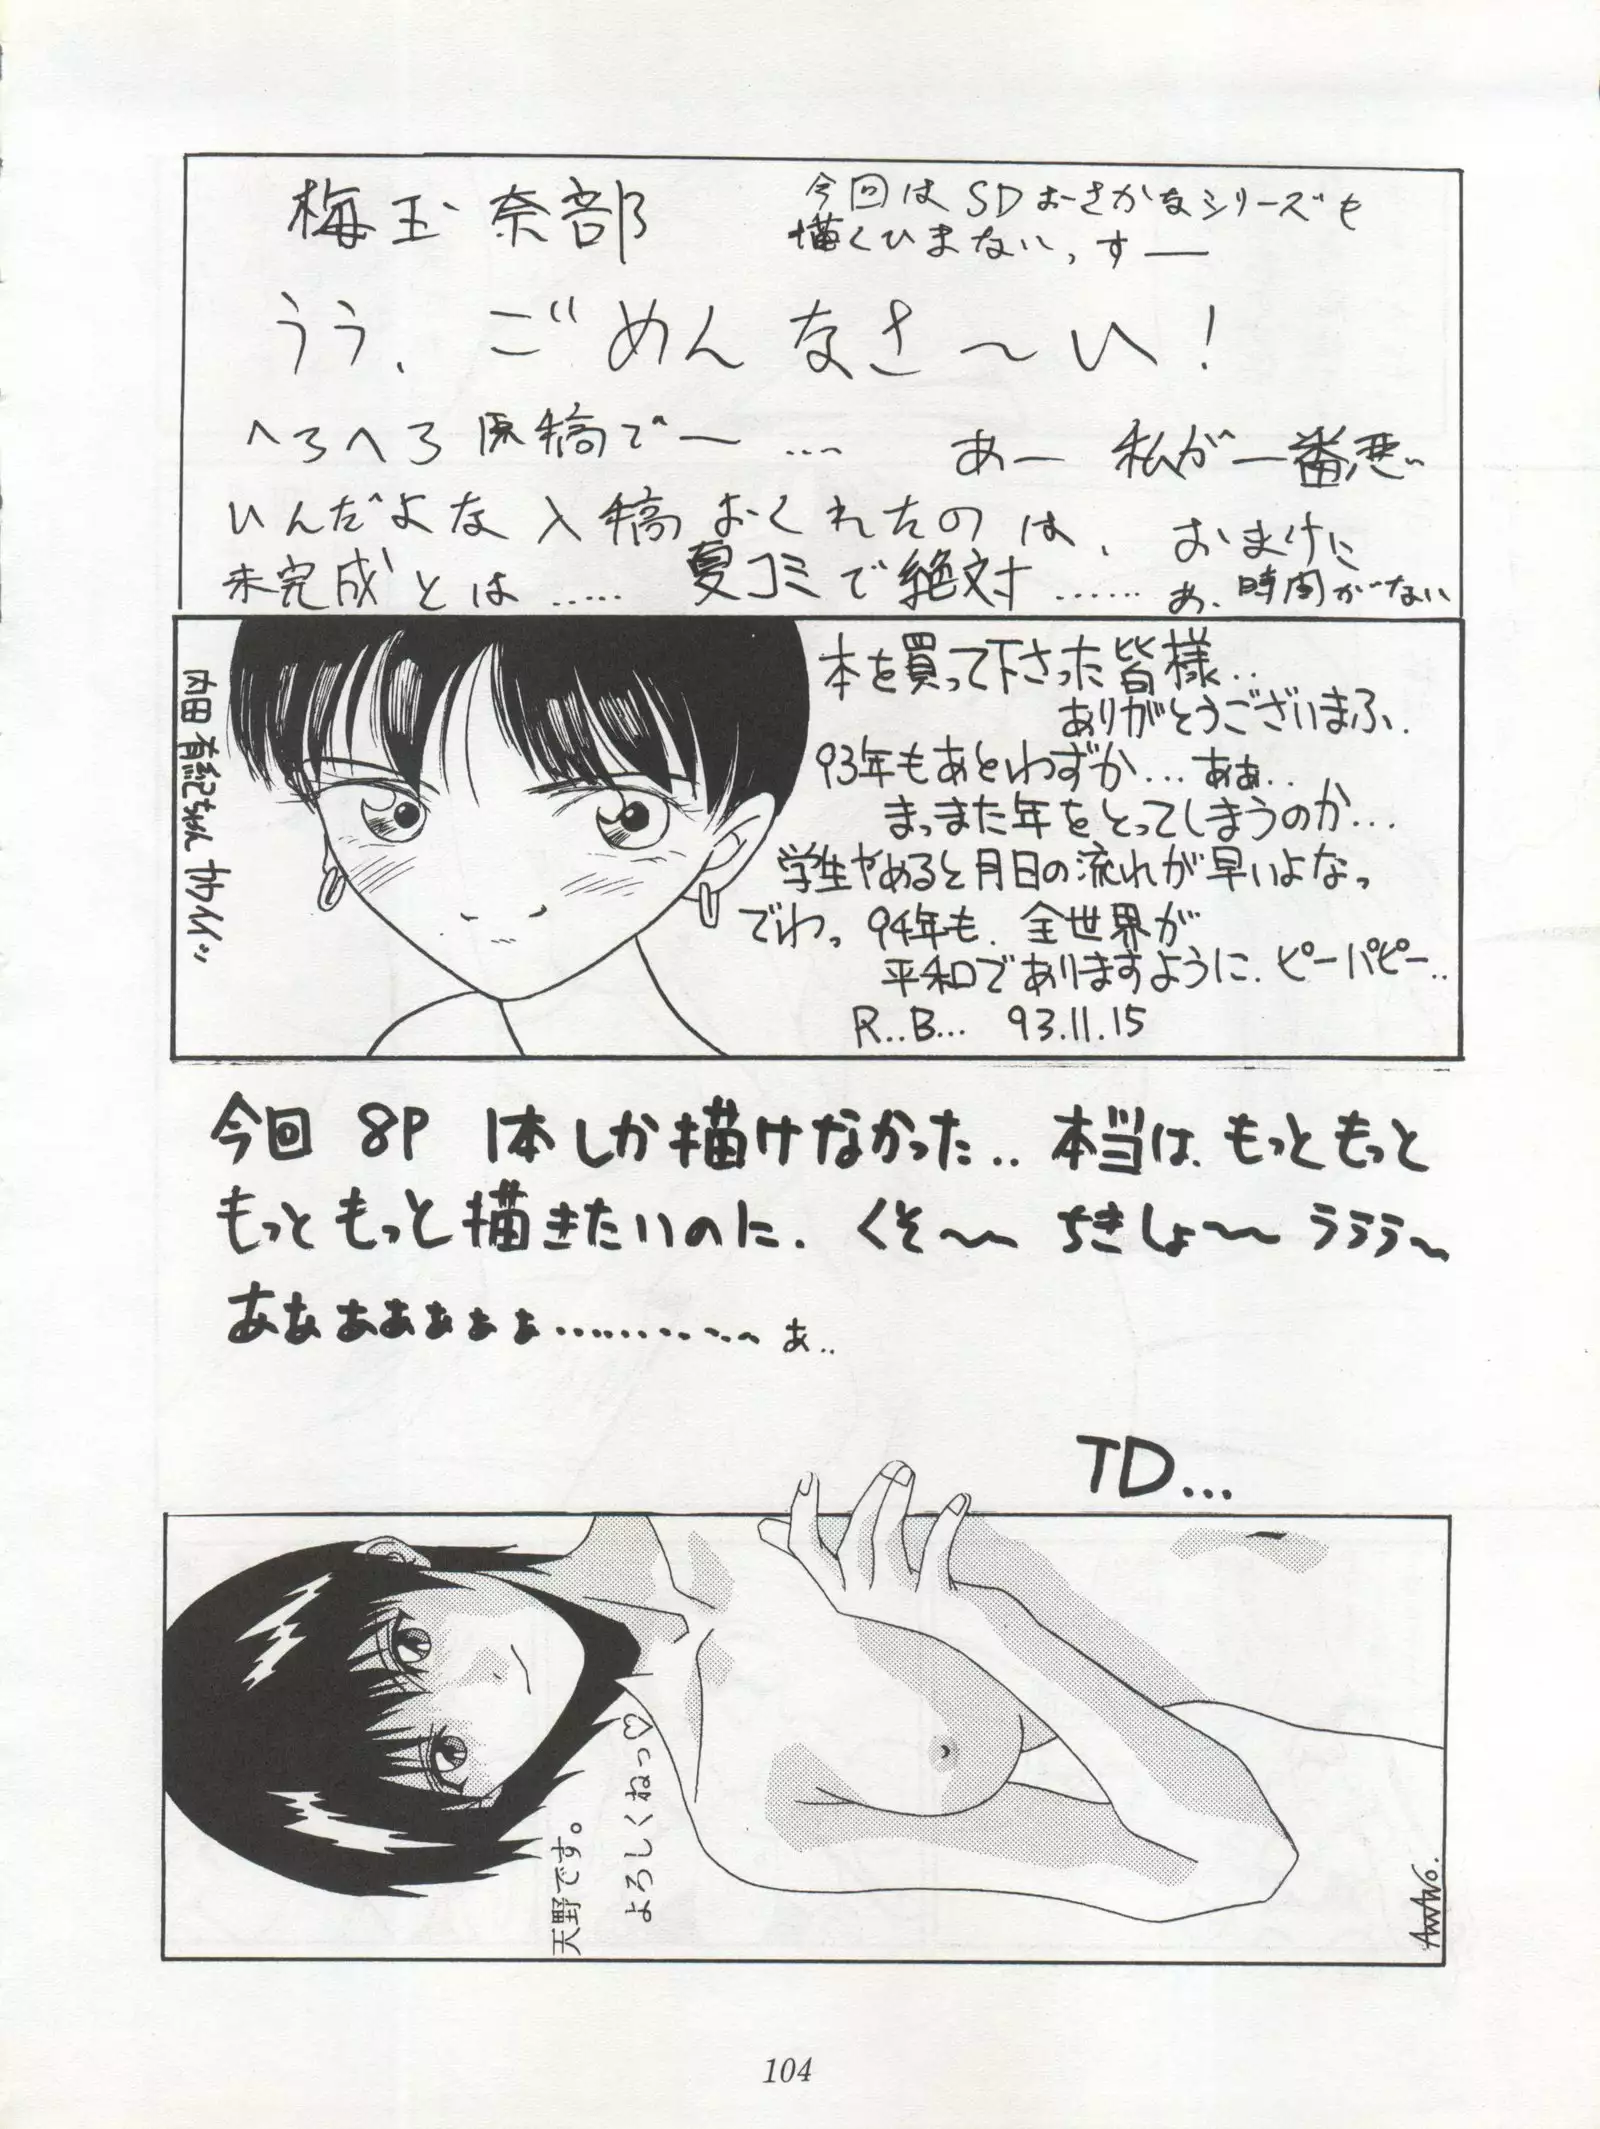 梅玉奈部
今回はSDおさかなシリーズも
描くひまないっすー
うう、ごめんなさ〜い!
へろへろ原稿でー....
あー 私が一番悪
いんだよな入稿おくれたのは、おまけに
未完成とは..... 夏コミで絶対...... あ、時間がない
内田有紀ちゃんカワイイッ
本を買って下さった皆様..
ありがとうございまふ.
93年もあとわずか... ああ..
まったまた年をとってしまうのか...
学生やめると月日の流れが早いよなっ
でわっ 94年も、全世界が
平和でありますように. ピーパピー..
R..B... 93.11.15
今回 8P 1本しか描けなかった.. 本当は、もっともっと
もっともっと描きたいのに. くそ〜〜 ちきしょ〜〜 ううう〜
あああああぁぁ............ あ..
TD...
天野です。
よろしくねっ♡
AMANO.
104